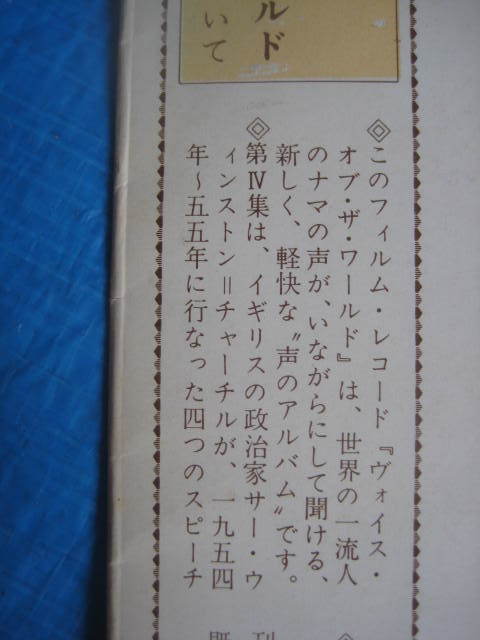 ルド
いて
◎このフィルム・レコード『ヴォイス・
オブ・ザ・ワールド』は、世界の一流人
のナマの声が、いながらにして聞ける、
新しく、軽快な〝声のアルバム〟です。
◎第Ⅳ集は、イギリスの政治家サー・ウ
ィンストン＝チャーチルが、一九五四
年～五五年に行なった四つのスピーチ